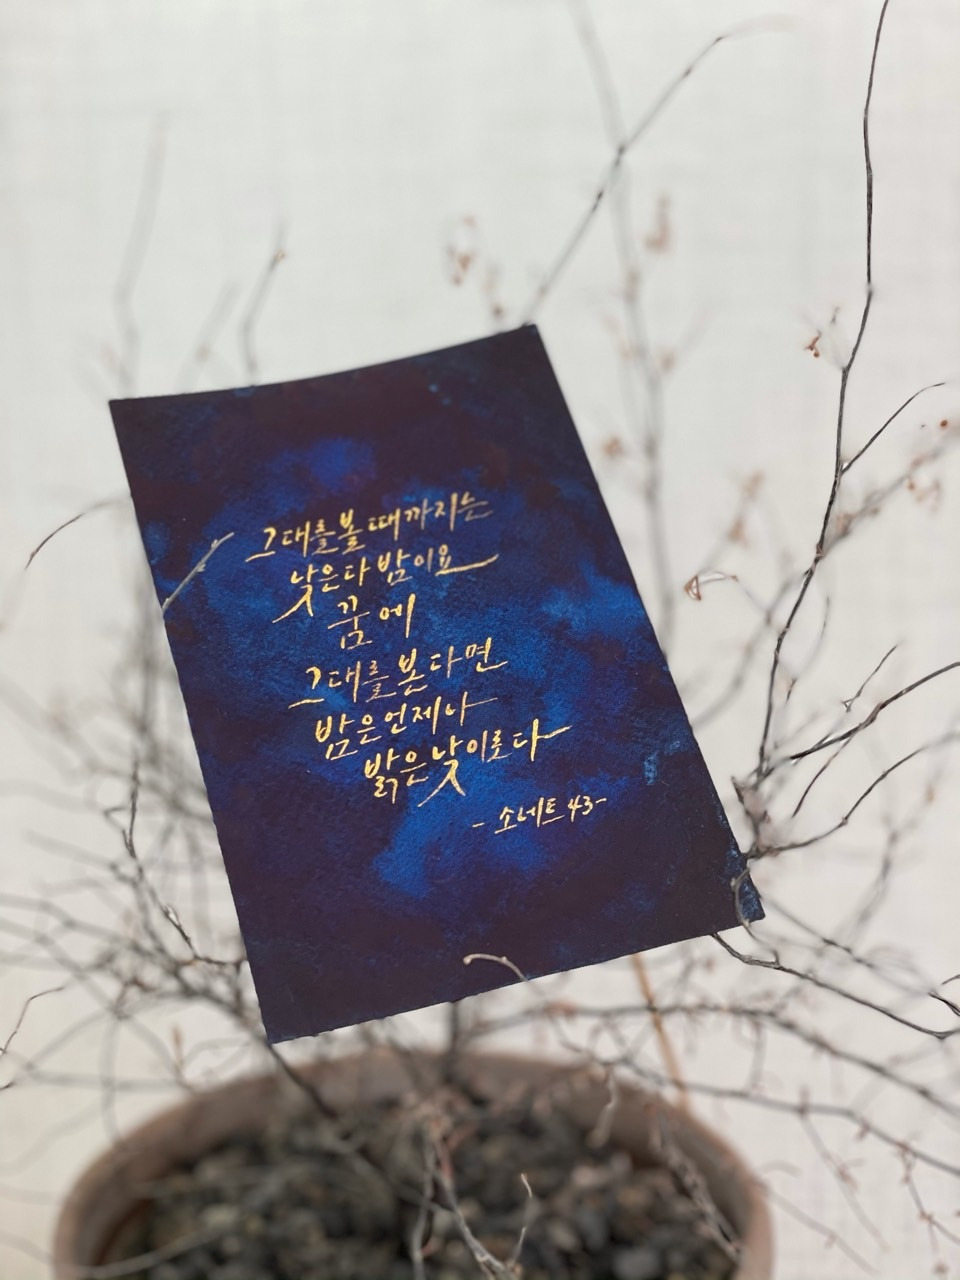 그대를 볼 때까지는
낮은 다 밤이요
꿈에
그대를 본다면
밤은 언제나
밝은 낮이로다
- 소네트 43-